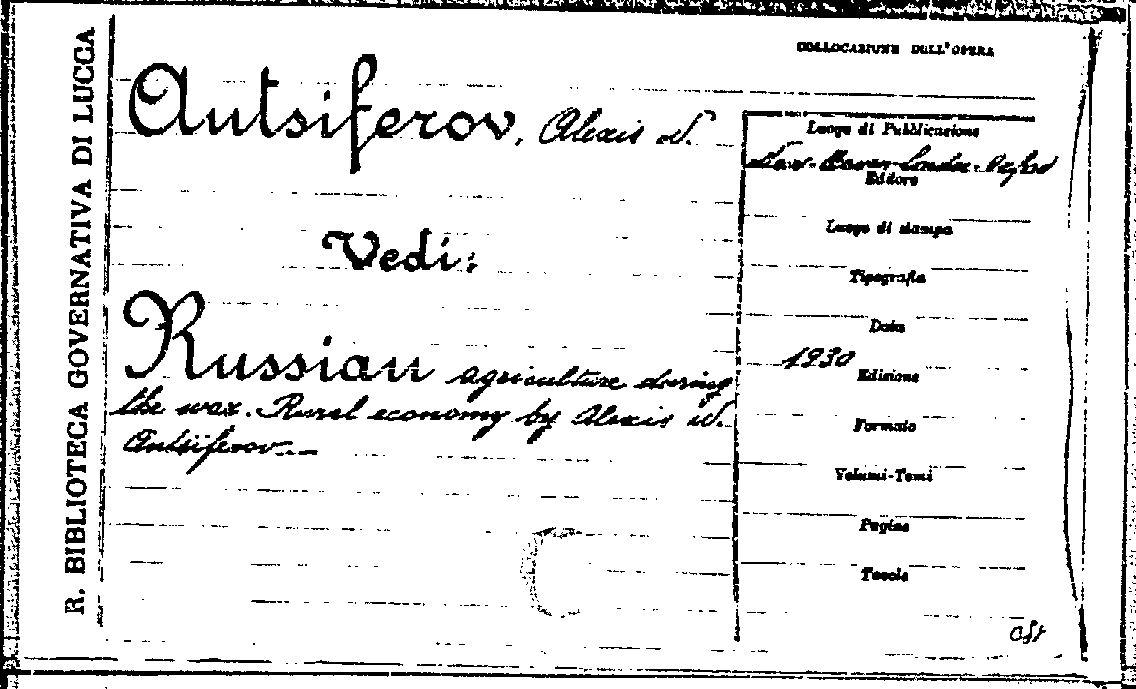 R. BIBLIOTECA GOVERNATIVA DI LUCCA
COLLOCAZIONE DELL'OPERA
Antsiferov, Alexis N.
Vedi:
Russian agriculture during
the war. Rural economy by Alexis N.
Antsiferov.
Luogo di Pubblicazione
New-Haven-London-Oxford
Editore
Luogo di stampa
Tipografia
Data
1930
Edizione
Formato
Volumi-Tomi
Pagine
Tavole